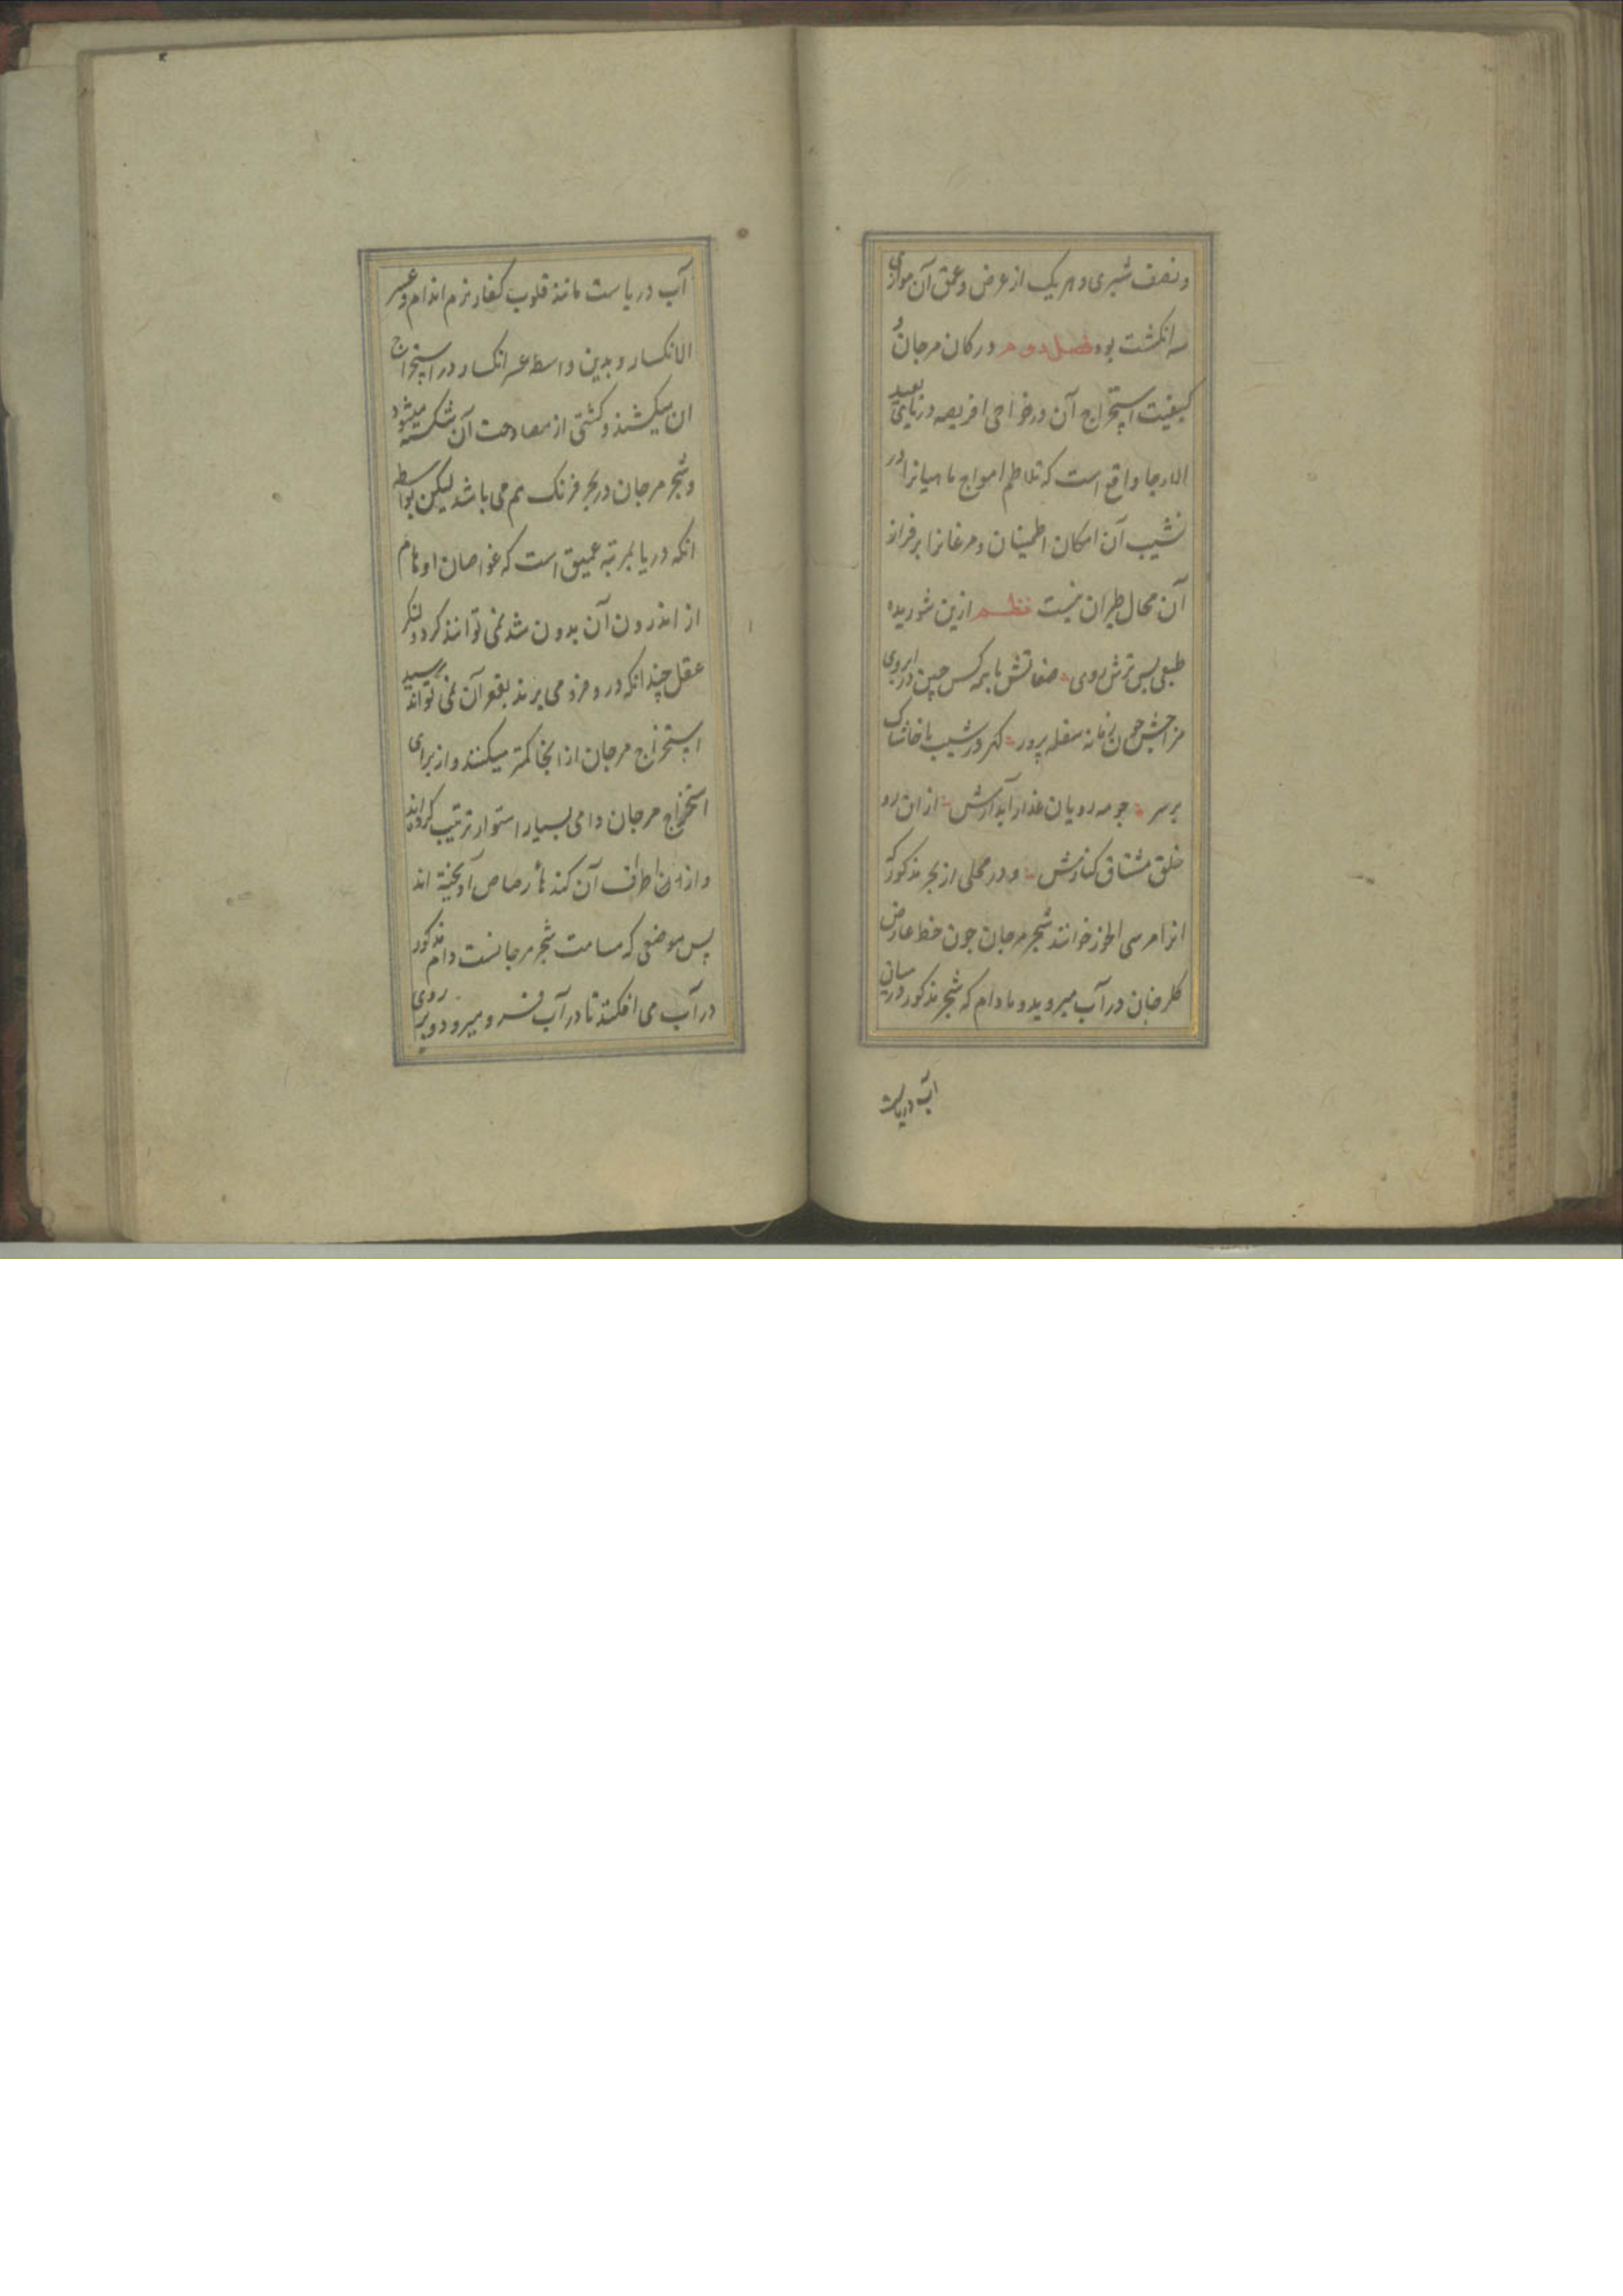 و نصف شبری و هر یک از عرض و عمق آن موازی
سه انکشت بود فصل دوم در کان مرجان و
کیفیت استخراج آن در نواحی افریصه دریای بعید
الارجا واقع است که تلاطم امواج ماهیانرا در
نشیب آن امکان اطمینان و مرغانرا بر فراز
آن مجال طیران نیست نظم ازین شوریده
طبعی بس ترش روی صفاتش با همه کس چین در ابروی
مزاجش چون زمانه سفله پرور کهر در شیب با خاشاک
بر سر چو مه رویان عذار آبدارش از ان رو
خلق مشتاق کنارش و در محلی از بحر مذکور که
انرا مرسی الخوز خوانند شجر مرجان چون خط عارض
کلرخان در آب میروید و مادام که شجر مذکور در میان
آب دریاست
آب دریاست مانند قلوب کفار نرم اندام و عسر
الانکسار و بدین واسطه عسر انکسار در استخراج
ان میکشند و کشتی از مصادمت آن شکسته میشود
و شجر مرجان در بحر فرنک هم می باشد لیکن بواسطه
انکه دریا بمرتبه عمیق است که غواصان اوهام
از اندرون آن بدون شد نمی توانند کرد و لنکر
عقل چندانکه درو فرو می برند بقعر آن نمی تواند رسید
استخراج مرجان از انجا کمتر میکنند و از برای
استخراج مرجان دامی بسیار استوار ترتیب کرده اند
و از اطراف آن کندهاء رصاص آویخته اند
پس موضعی که مسامت شجر مرجانست دام مذکور
در آب می افکنند تا در آب فرو میرود و بر روی